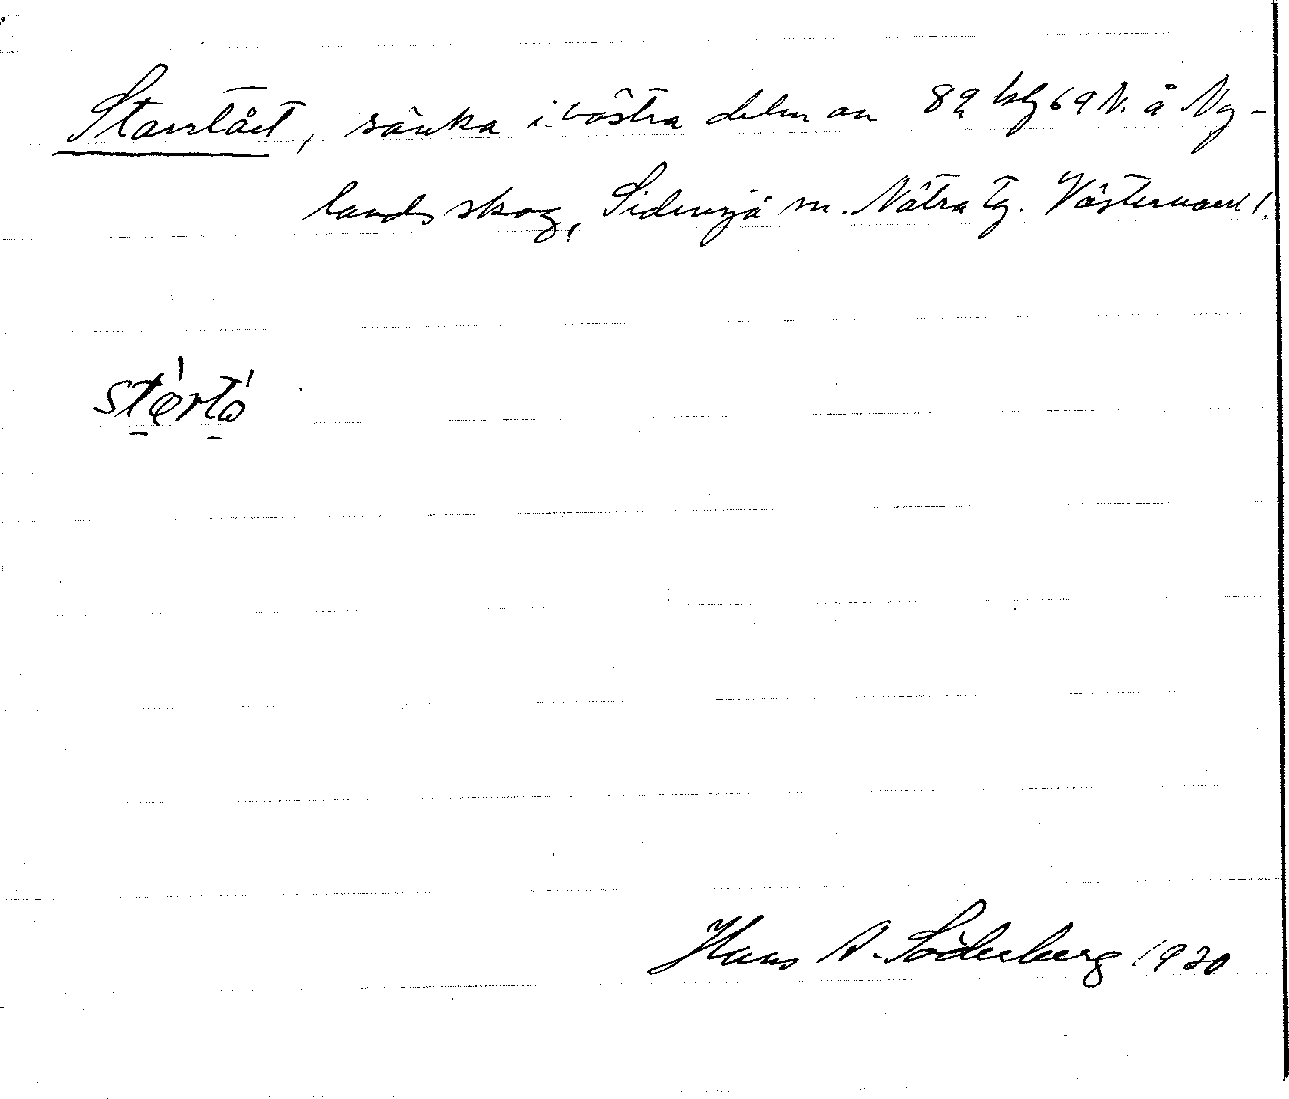 Starrtäet, sänka i västra delen av 82 hlg 69 N. å Ny-
lands skog, Sidensjö sn. Nätra tg. Västernorrl l.
Hans A. Söderberg 1920